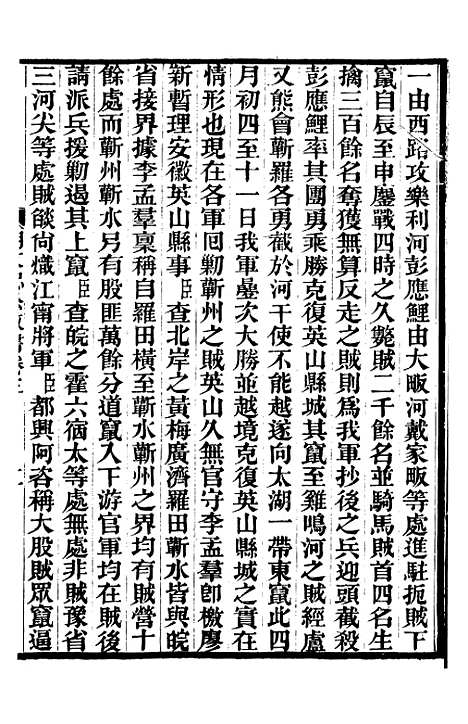 一由西路攻樂利河彭應鯉由大畈河戴家畈等處進駐扼賊下
竄自辰至申鏖戰四時之久斃賊二千餘名並騎馬賊首四名生
擒三百餘名奪獲無算反走之賊則爲我軍抄後之兵迎頭截殺
彭應鯉率其團勇乘勝克復英山縣城其竄至雞鳴河之賊經盧
又熊會蘄羅各勇截於河干使不能越遂向太湖一帶東竄此四
月初四至十一日我軍疊次大勝並越境克復英山縣城之實在
情形也現在各軍回剿蘄州之賊英山久無官守李孟羣卽檄廖
新暫理安徽英山縣事臣查北岸之黃梅廣濟羅田蘄水皆與皖
省接界據李孟羣稟稱自羅田橫至蘄水蘄州之界均有賊營十
餘處而蘄州蘄水另有股匪萬餘分道竄入下游官軍均在賊後
請派兵援剿遏其上竄臣查皖之霍六宿太等處無處非賊豫省
三河尖等處賊燄尙熾江甯將軍臣都興阿咨稱大股賊眾竄逼